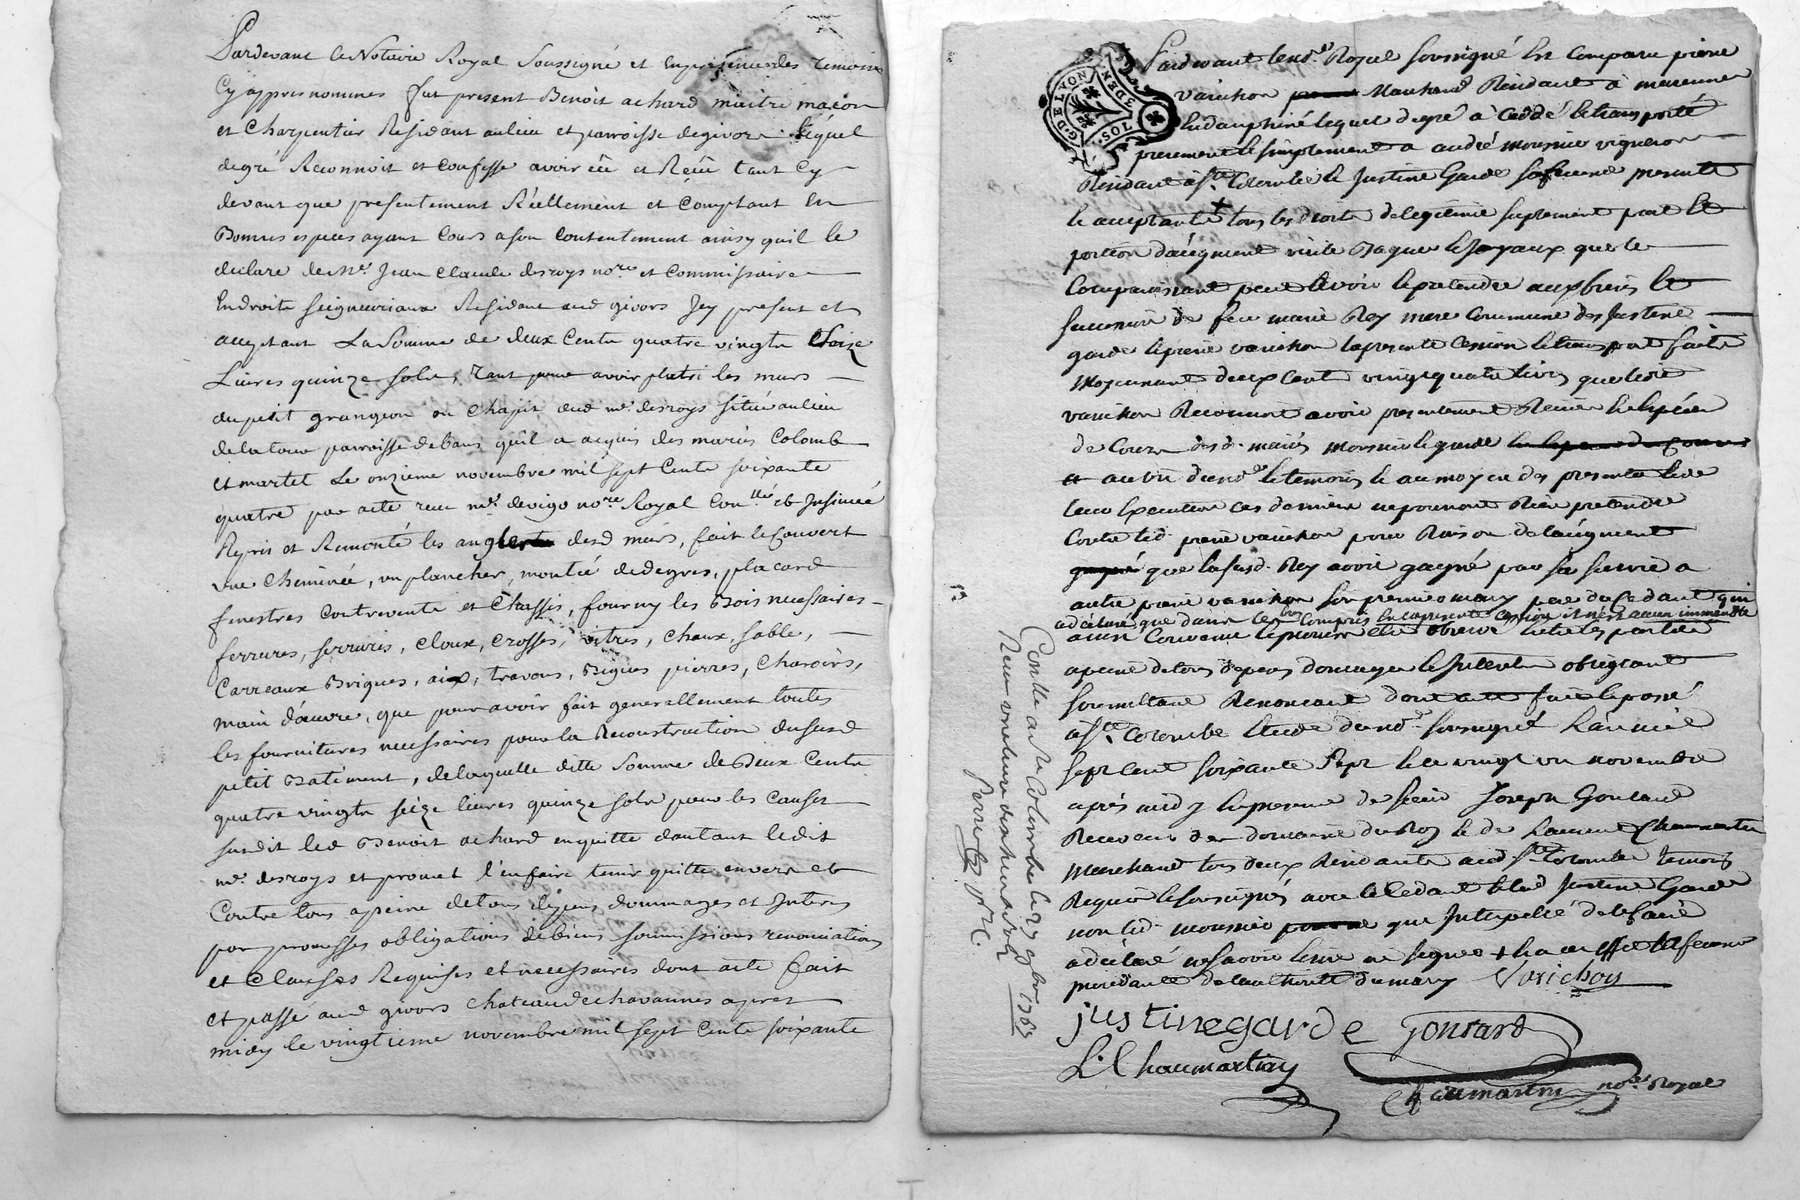 Pardevant le Notaire Royal Soussigné et En presence des temoins
Cy appres nommes fut present Benoit achard maitre maçon
et Charpentier Residant au lieu et parroisse de givors lequel
de gré Reconnoit et Confesse avoir eü et Receu tant Cy
devant que presentement Réellement et Comptant En
Bonnes especes ayant Cours a son Contentement ainsy quil le
declare de Me. Jean Claude desroys nore. et Commissaire
En droits seigneuriaux Residant aud givors Jcy present et
acceptant La Somme de deux Cents quatre vingts seize
Livres quinze sols, tant pour avoir platri les murs
du petit grangeon ou Chapit dud me. desroys situé au lieu
de la tour parroisse de bans qu'il a acquis des mariés Colomb
et martet le onzieme novembre mil sept Cents soixante
quatre par acte receu me. devigo nore. Royal Conllé et Jnsinué
Repris et Remonté les angles desd murs, fait le Couvert
une Cheminée, un plancher, montée de degres, placard
fenestres Contrevents et Chassis, fourny les Bois necessaires
ferrures, serrures, cloux, crosses, vitres, chaux, sable,
Carreaux Briques, aix, travons, Bigues pierres, Charoirs,
main d'œuvre, que pour avoir fait generallement toutes
les fournitures necessaires pour la Reconstruction dususd
petit Batiment, de laquelle ditte Somme de Deux Cents
quatre vingts seize livres quinze sols pour les Causes
susdit led Benoit achard en quitte dautant ledit
me. desroys et promet l'en faire tenir quitte envers et
Contre tous a peine de tous depens dommages et Jnterets
par promesses obligations de biens soumissions renonciations
et Clauses Requises et necessaires dont acte fait
et passé aud givors chateau de chavannes apres
midy le vingtieme novembre mil sept Cents soixante
G. DE LYON
3 DEN
SOL
Pardevant le nore. Royal soussigné En Comparu pierre
varichon Marchand Residant à
En dauphiné lequel de gré à Cedé et transporté
purement et simplement a andré mousnier vigneron
Residant à Ste. Colombe et Justine Garde sa femme presente
et acceptante + tous les droits de legitime suplement part et
portion d'augment Bague et Joyaux que le
Comparaissant peut avoir et pretendre aux biens et
succession de feue marie Rey mere Commune des Justine
garde et pierre varichon la presente Cession et transport faite
Moyenant deux cent vingt quatre livres que ledit
varichon Reconnoit avoir presentement Receu En especes
de Cours desd. mariés mousnier et garde
au vû dud nore. et temoins et au moyen des presentes et de
leur Execution ces derniers ne pourront Rien pretendre
Contre led. pierre varichon pour Raison de l'augment
que lasusd. Rey avoit gagné par sa survie a
autre pierre varichon son premier mary pere du Cedant qui
a declaré que dans les biens Compris En la presente Cession il n'est aucun immeuble
ainsi Convenu
a peine de tous depens dommages et Interets obligeant
soumettant Renonceant dont acte fait et passé
à Ste. Colombe Etude dud nore. soussigné L'an mil
sept cent soixante sept et le vingt un novembre
après midy En presence de sieur Joseph Gontard
Receveur des domaine du Roy et de Laurent Chaumartin
Marchand tous deux Residants aud Ste. Colombe temoins
Requis et soussignés avec le Cedant et lad Justine Garde
non led. mousnier que Interpellé de le faire
a declaré ne savoir Ecrire ni signer + la femme
procedante de l'authorité du mary Varichon
justinegarde Gontard
L. Chaumartin
Chaumartin nore. Royal
Conllé a Ste Colombe le 29 9bre 1767